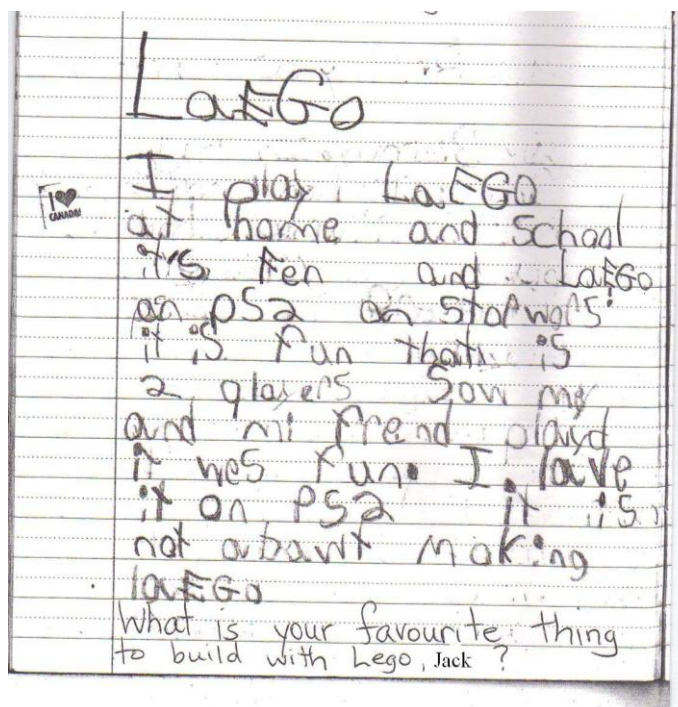 LaEGo
I play LaEGO
at home and School
I ♥
CANADA!
it's Fen and LaEGo
on PS2 on starwars
it is fun that is
2 players Sow my
and mi frend playd
it wes fun. I love
it on PS2 it is
not abawt making
laEGo
What is your favourite thing
to build with Lego, Jack ?